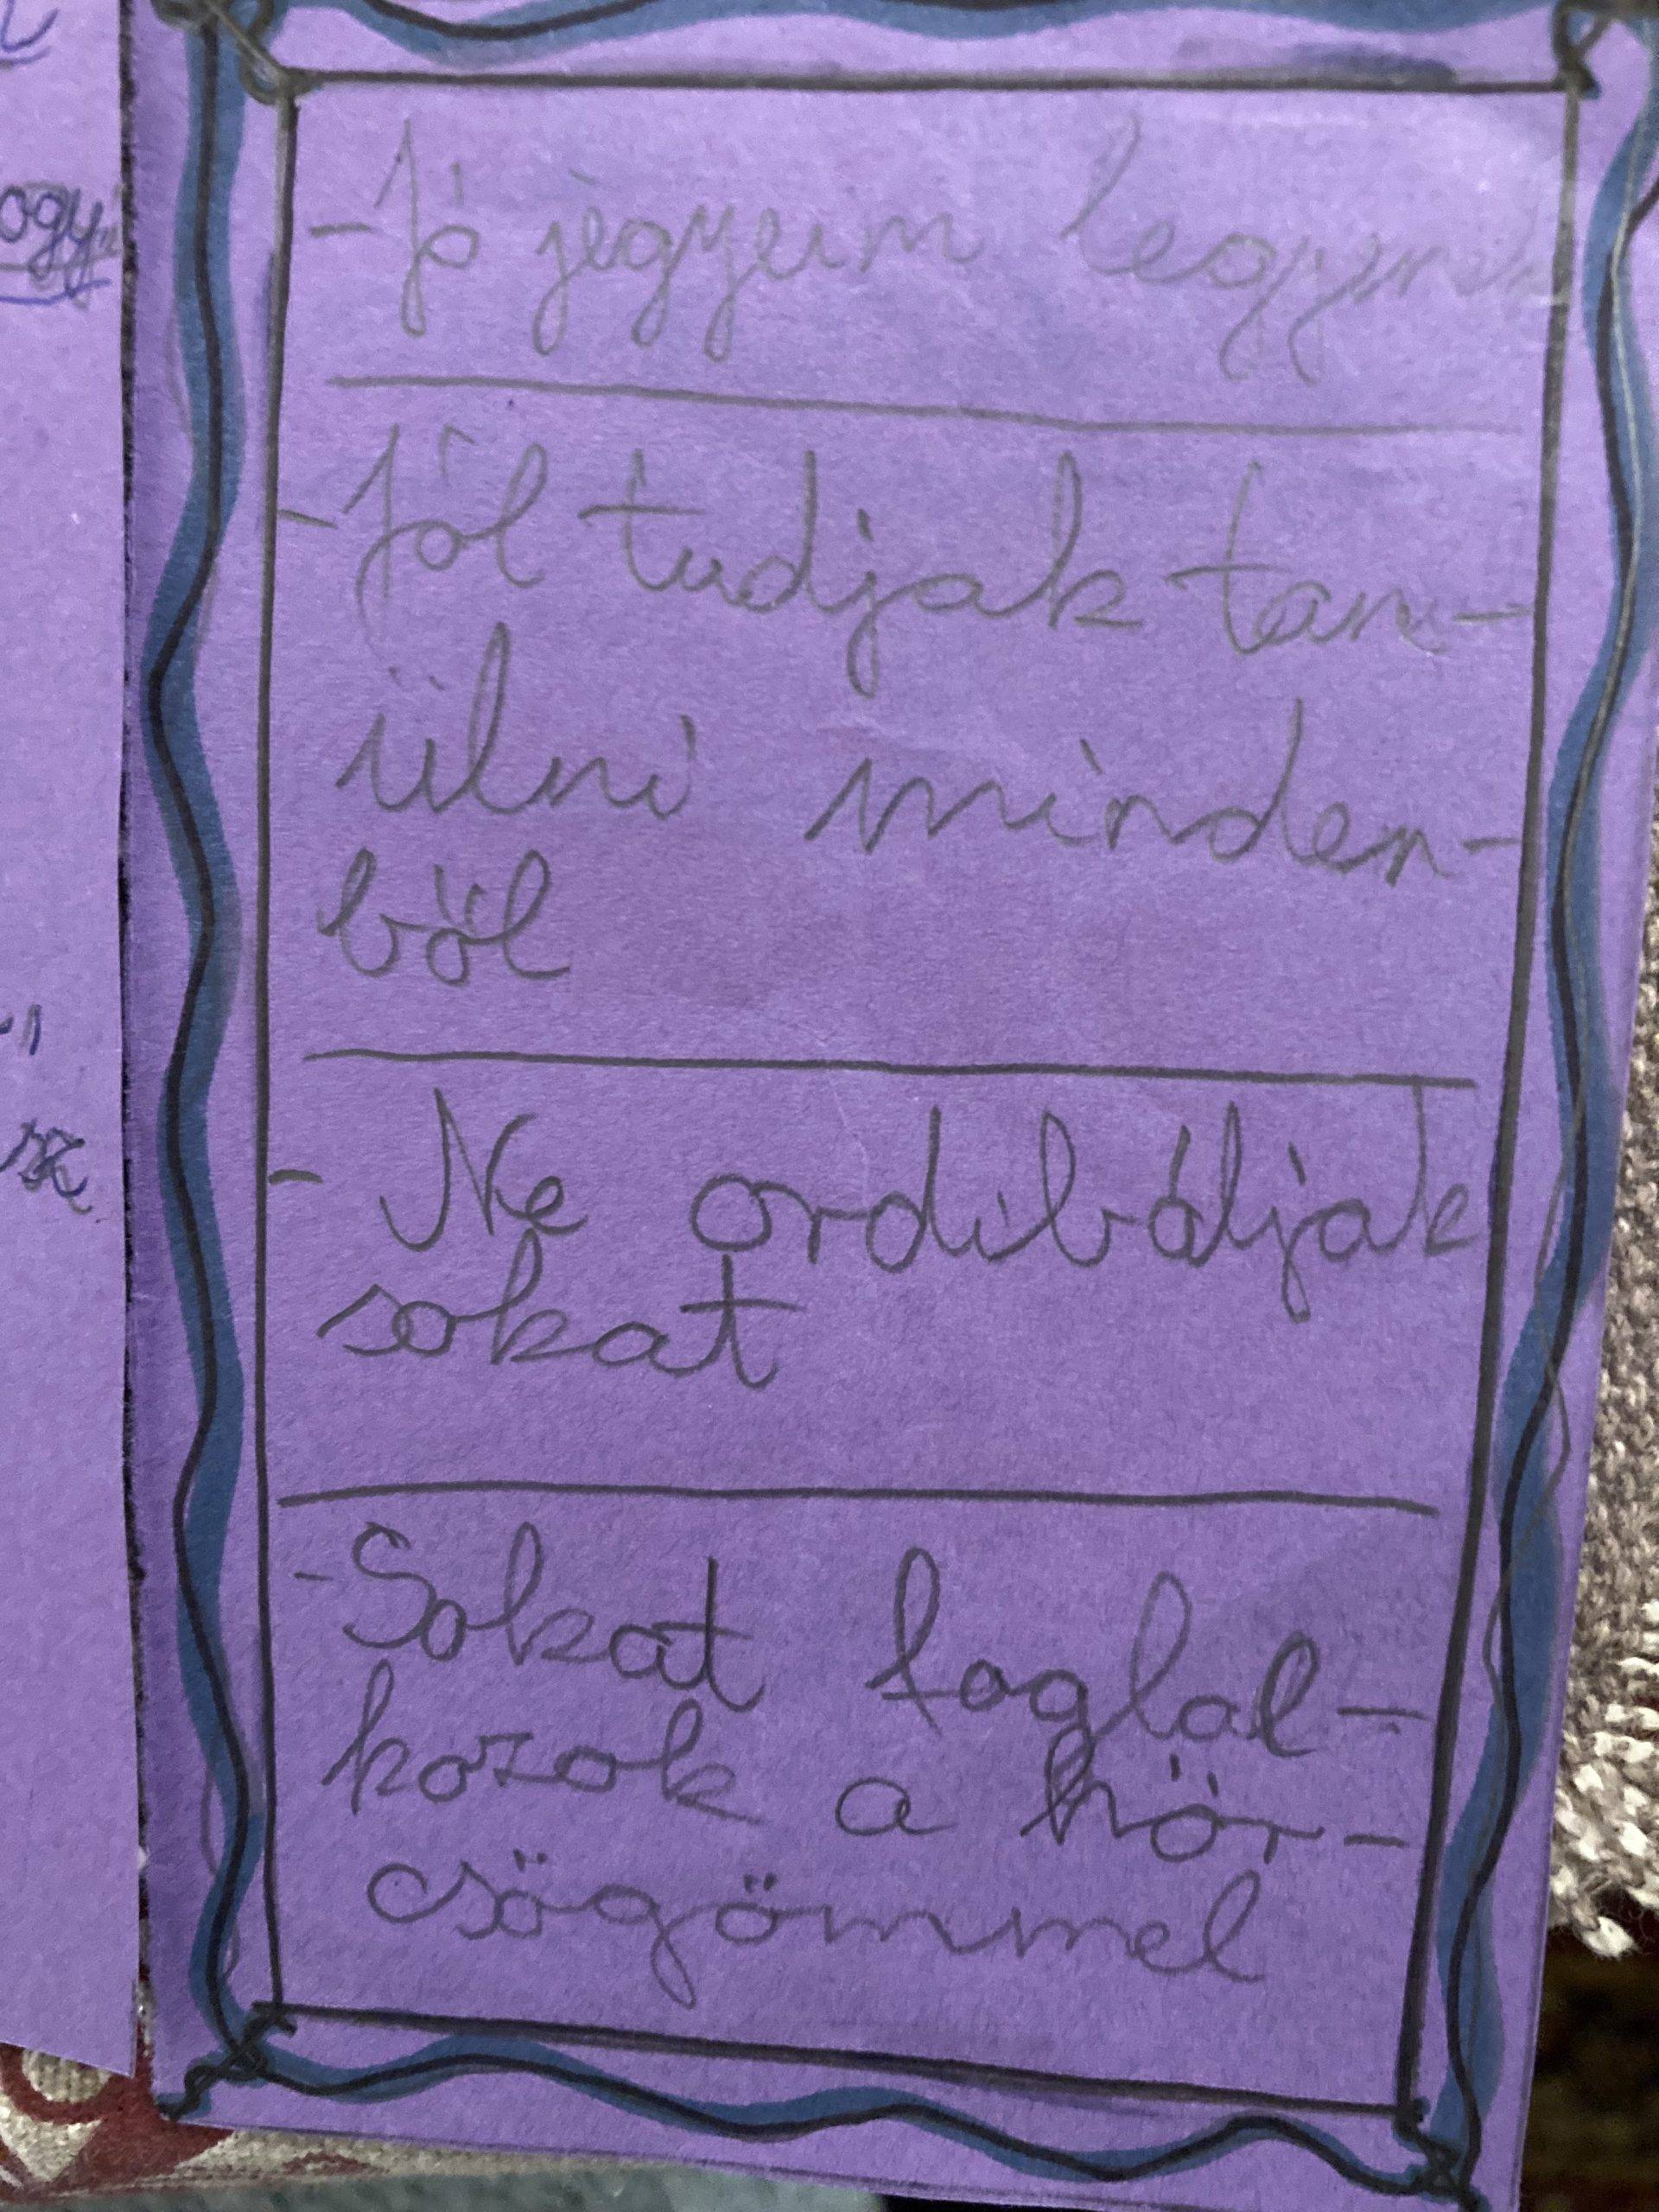 ogy
- Jó jegyeim legyenek
- Jól tudjak tan-
ülni minden-
ből
- Ne ordibáljak
sokat
- Sokat foglal-
kozok a hör-
csögömmel